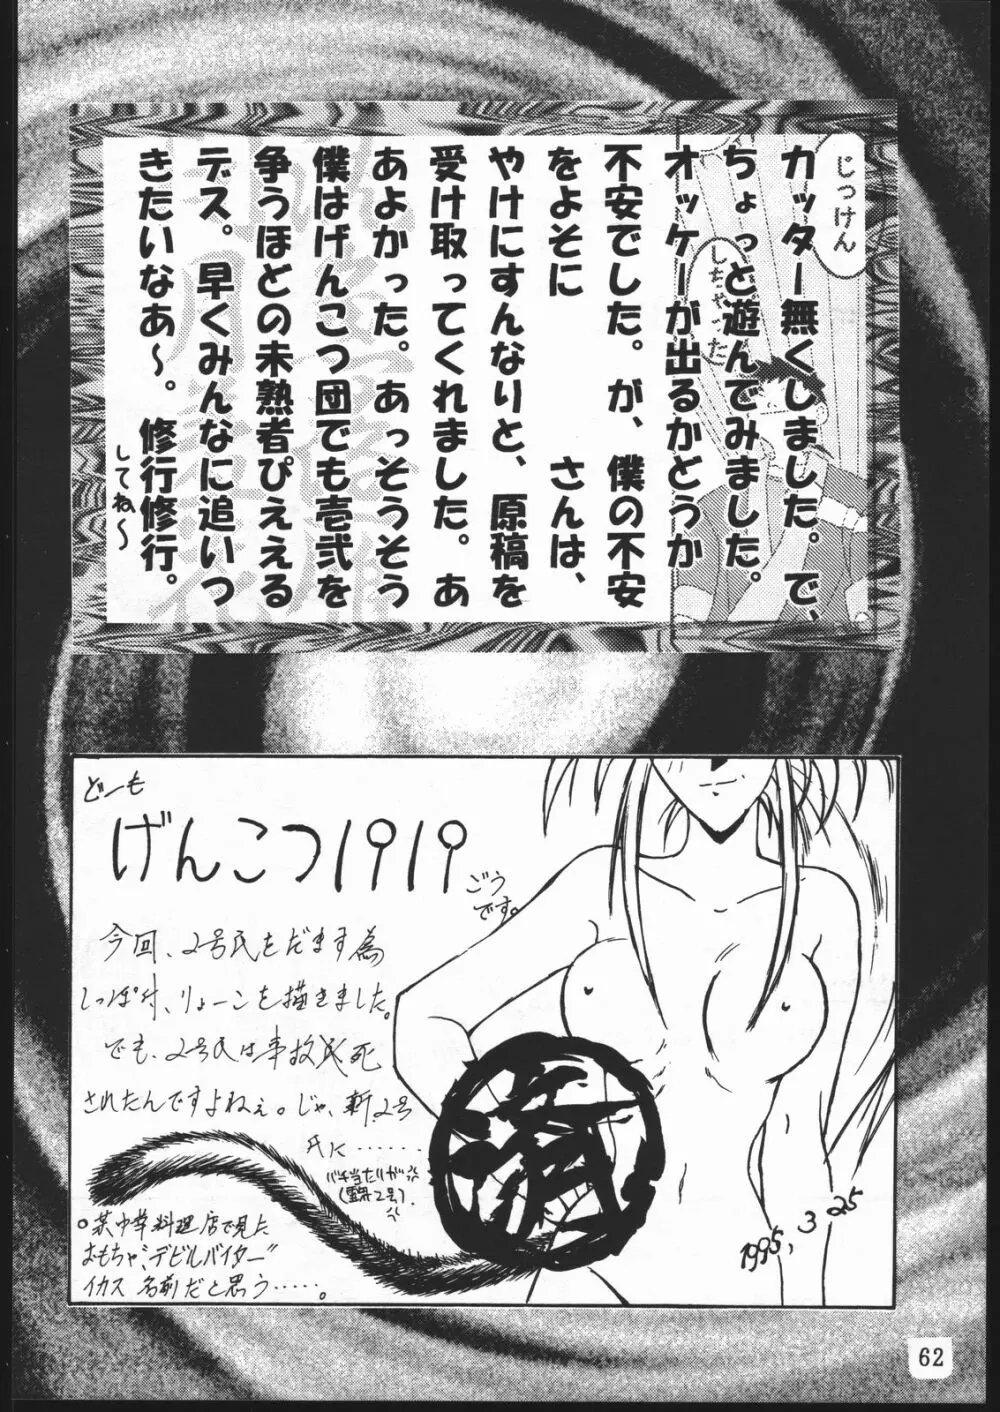 じっけん
しちゃった
カッター無くしました。で、
ちょっと遊んでみました。
オッケーが出るかどうか
不安でした。が、僕の不安
をよそに　　　さんは、
やけにすんなりと、原稿を
受け取ってくれました。あ
あよかった。あっそうそう
僕はげんこつ団でも壱弐を
争うほどの未熟者ぴええる
デス。早くみんなに追いつ
きたいなあ〜。修行修行。
してね〜
どーも
げんこつ1919
ごう
です。
今回、2号氏をだます為
しっぽ付、りょーこを描きました。
でも、2号氏は事故死
されたんですよねぇ。じゃ、新2号
氏に……
バチ当たりが
(霊界2号).
某中華料理店で見た
おもちゃ"デビルバイター"
イカス名前だと思う……。
済
1995,3 25
62